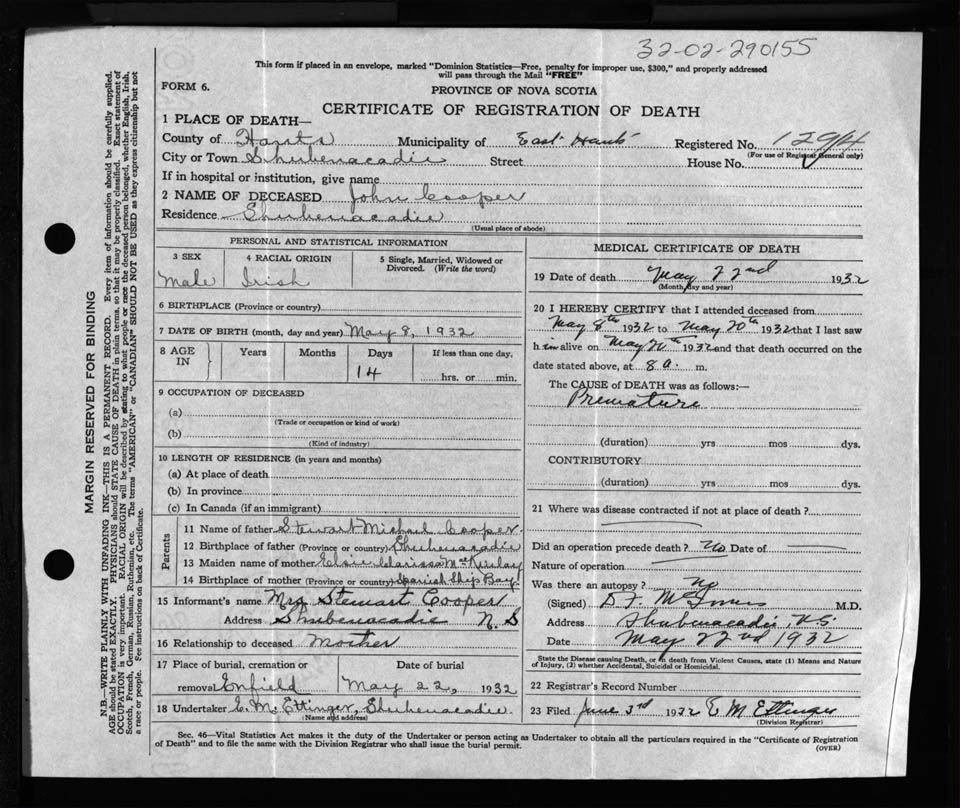 32-02-290155
This form if placed in an envelope, marked "Dominion Statistics—Free, penalty for improper use, $300," and properly addressed
will pass through the Mail "FREE"
FORM 6.
PROVINCE OF NOVA SCOTIA
CERTIFICATE OF REGISTRATION OF DEATH
1 PLACE OF DEATH—
County of Hants Municipality of East Hants Registered No. 1294
(For use of Registrar General only)
City or Town Shubenacadie Street House No.
If in hospital or institution, give name
2 NAME OF DECEASED John Cooper
Residence Shubenacadie
(Usual place of abode)
PERSONAL AND STATISTICAL INFORMATION
3 SEX 4 RACIAL ORIGIN 5 Single, Married, Widowed or
Divorced. (Write the word)
Male Irish
6 BIRTHPLACE (Province or country)
7 DATE OF BIRTH (month, day and year) May 8, 1932
8 AGE IN Years Months Days If less than one day,
14 hrs. or min.
9 OCCUPATION OF DECEASED
(a)
(Trade or occupation or kind of work)
(b)
(Kind of industry)
10 LENGTH OF RESIDENCE (in years and months)
(a) At place of death
(b) In province
(c) In Canada (if an immigrant)
Parents
11 Name of father Stewart Michael Cooper
12 Birthplace of father (Province or country) Shubenacadie
13 Maiden name of mother Elsie Clarissa McKinlay
14 Birthplace of mother (Province or country) Spanish Ship Bay
15 Informant's name Mrs Stewart Cooper
Address Shubenacadie N.S
16 Relationship to deceased Mother
17 Place of burial, cremation or Date of burial
removal Enfield May 22, 1932
18 Undertaker E. M. Ettinger, Shubenacadie.
(Name and address)
MEDICAL CERTIFICATE OF DEATH
19 Date of death May 22nd 1932
(Month, day and year)
20 I HEREBY CERTIFY that I attended deceased from
May 8th 1932 to May 20th 1932 that I last saw
h im alive on May 20th 1932 and that death occurred on the
date stated above, at 8 a. m.
The CAUSE of DEATH was as follows:—
Premature
(duration) yrs mos dys.
CONTRIBUTORY
(duration) yrs mos dys.
21 Where was disease contracted if not at place of death?
Did an operation precede death? No Date of
Nature of operation
Was there an autopsy? No
(Signed) D F McInnis M.D.
Address Shubenacadie, N.S.
Date May 22nd 1932
State the Disease causing Death, or in death from Violent Causes, state (1) Means and Nature
of Injury, (2) whether Accidental, Suicidal or Homicidal.
22 Registrar's Record Number
23 Filed June 3rd 1932 E M Ettinger
(Division Registrar)
Sec. 46—Vital Statistics Act makes it the duty of the Undertaker or person acting as Undertaker to obtain all the particulars required in the "Certificate of Registration
of Death" and to file the same with the Division Registrar who shall issue the burial permit.
(OVER)
MARGIN RESERVED FOR BINDING
N.B.—WRITE PLAINLY WITH UNFADING INK—THIS IS A PERMANENT RECORD. Every item of information should be carefully supplied.
AGE should be stated EXACTLY. PHYSICIANS should STATE CAUSE OF DEATH in plain terms, so that it may be properly classified. Exact statement of
OCCUPATION is very important. RACIAL ORIGIN will be described by stating to what people or race the deceased person belonged, whether English, Irish,
Scotch, French, German, Russian, Ruthenian, etc. The terms "AMERICAN" or "CANADIAN" SHOULD NOT BE USED as they express citizenship but not
a race or people. See instructions on back of Certificate.